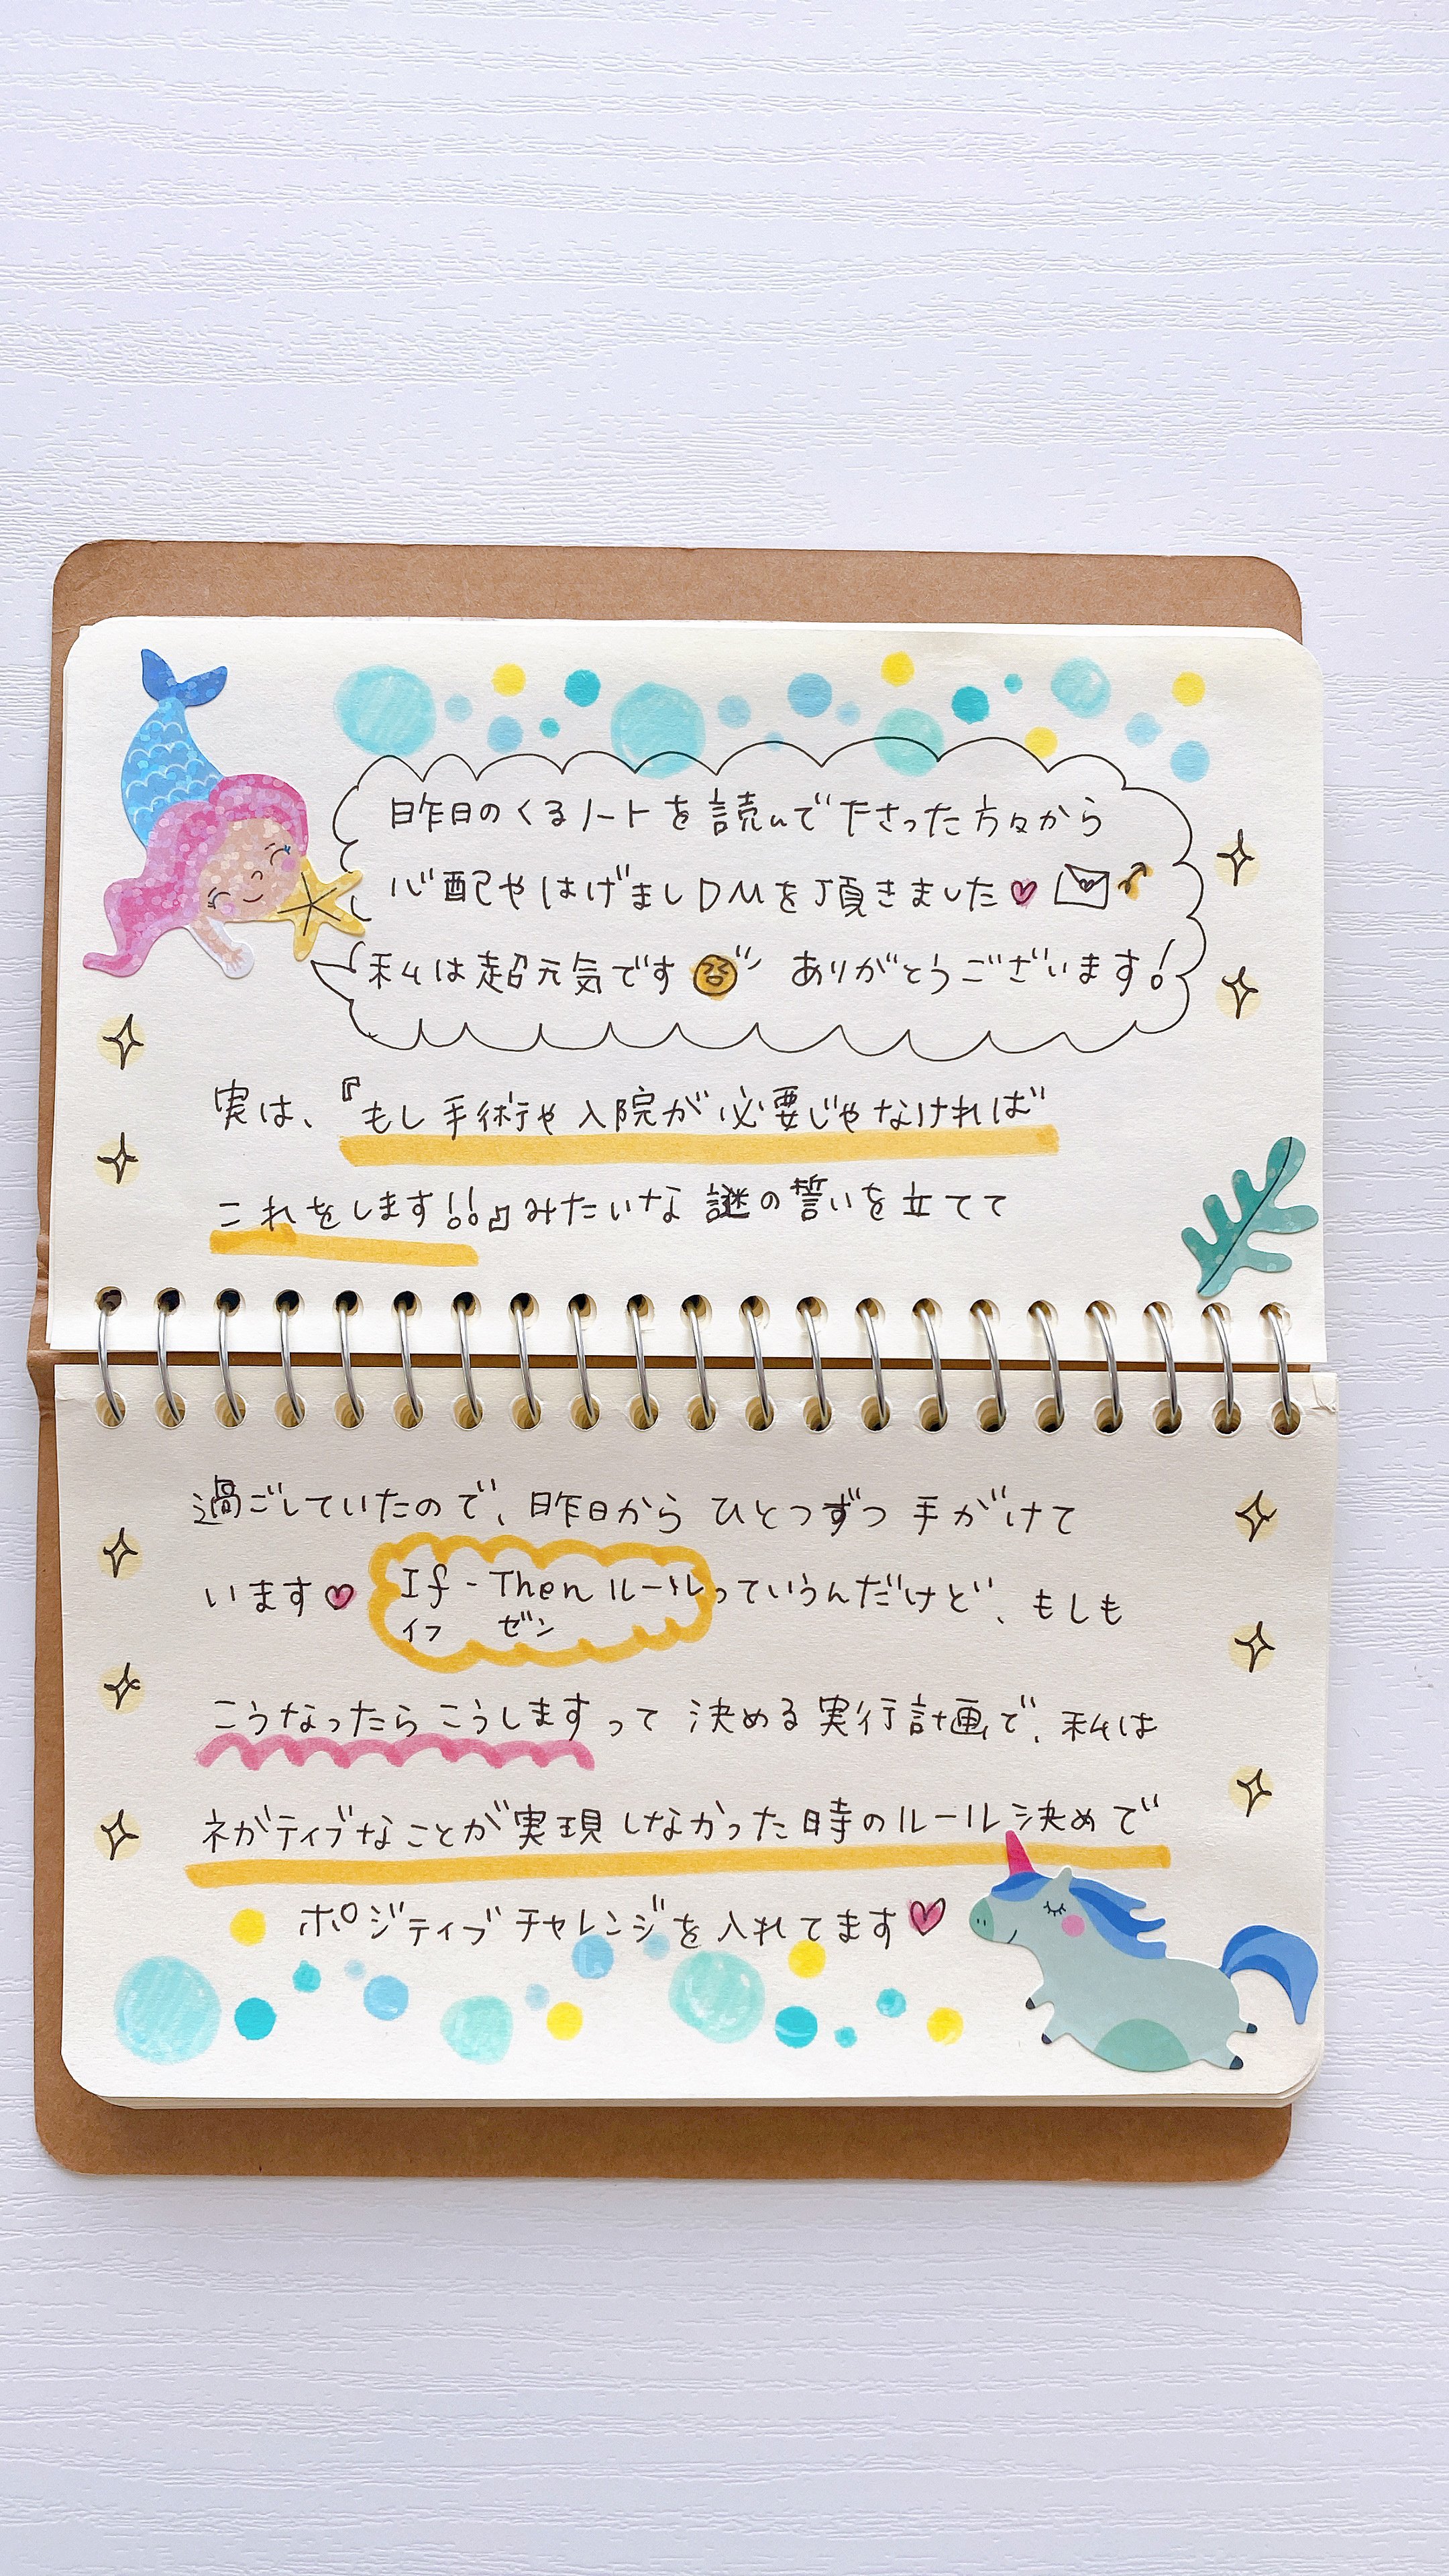 昨日のくるノートを読んで下さった方々から
心配やはげましDMを頂きました
私は超元気です ありがとうございます!
実は、『もし手術や入院が必要じゃなければ
これをします!!』みたいな謎の誓いを立てて
過ごしていたので、昨日からひとつずつ手がけて
います If-Thenルールっていうんだけど、もしも
イフ ゼン
こうなったらこうしますって決める実行計画で、私は
ネガティブなことが実現しなかった時のルール決めで
ポジティブチャレンジを入れてます